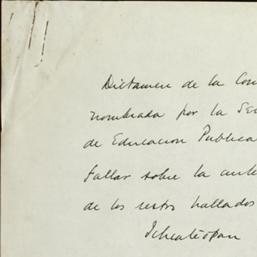 Dictamen de la Com
nombrada por la Sec
de Educacion Publica
fallar sobre la aute
de los restos hallados
Ichcateopan